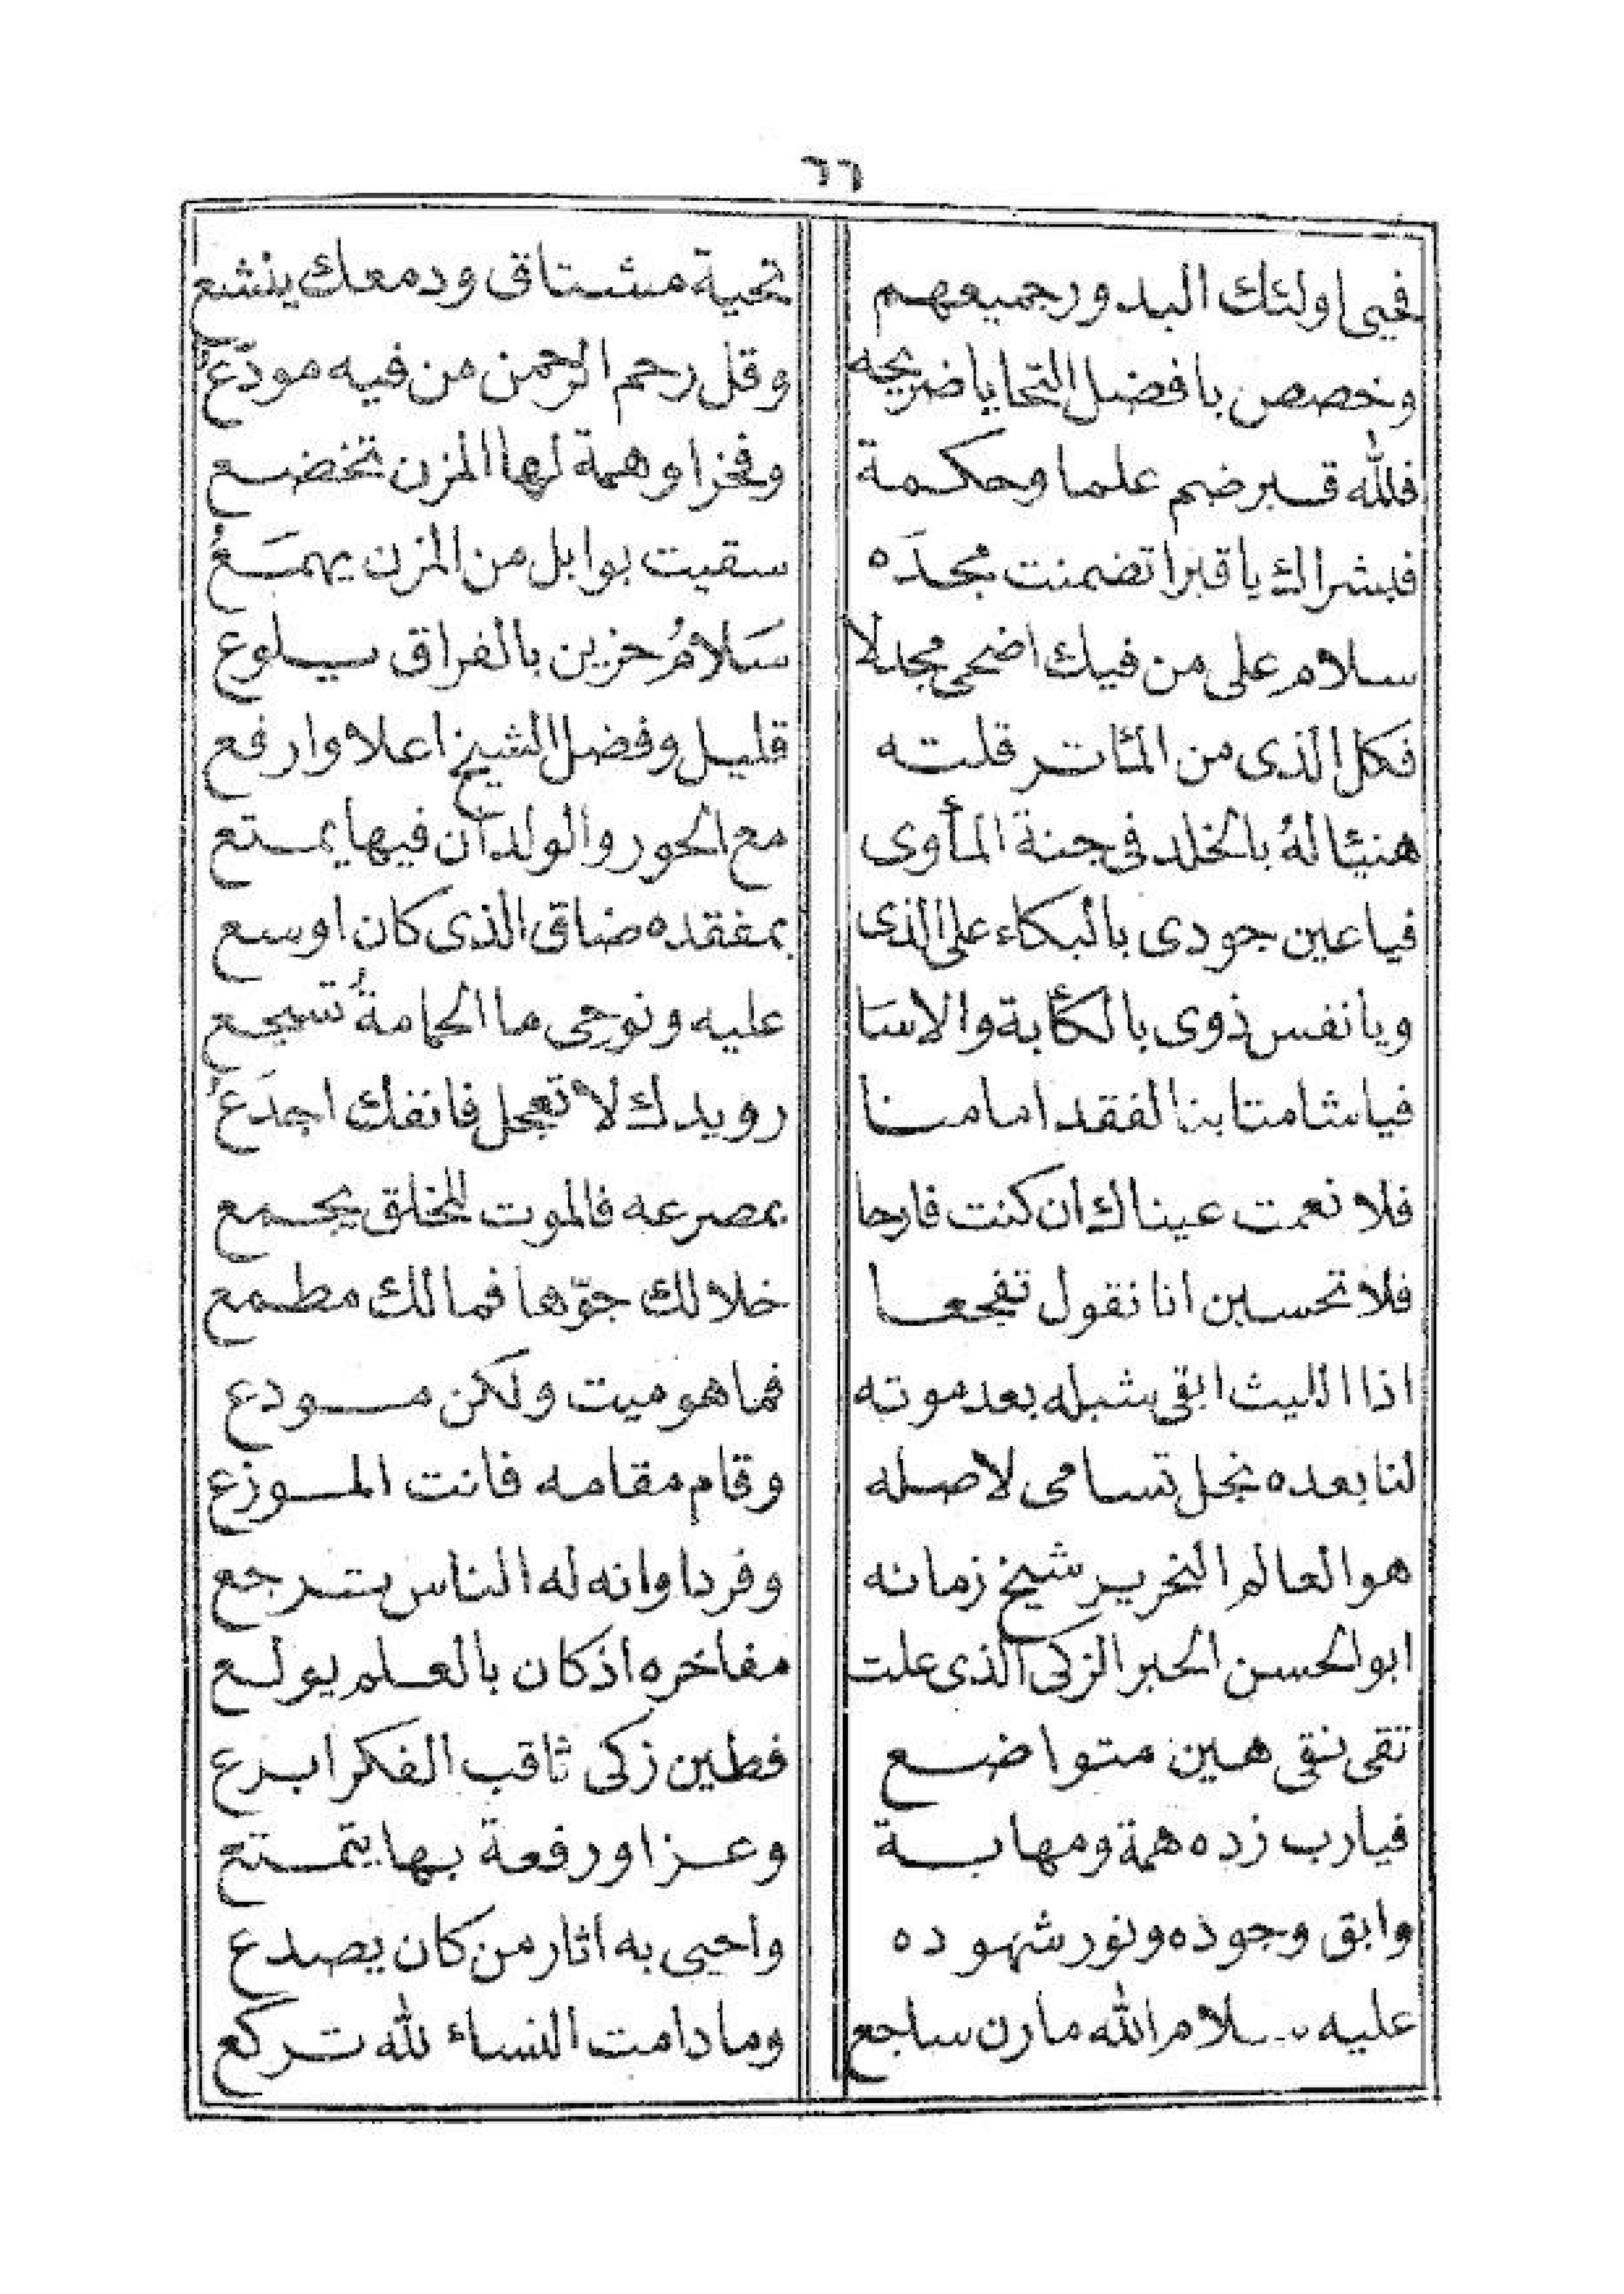 ٦٦
فحيى اولئك البدور جميعهم تحية مشتاق ودمعك ينشع
وخصص بافضل التحايا ضريحه وقل رحم الرحمن من فيه مودّعُ
فللّه قبر ضم علما وحكمة وفخرا وهمة لها المزن تخضع
فبشراك يا قبرا تضمنت مجدَه سقيت بوابل من المزن يهمَعُ
سلام على من فيك اضحى مجدلا سَلامُ حزين بالفراق يلوع
فكل الذى من المئاتر قلته قليل وفضل الشيخ اعلا وارفع
هنيئا لهُ بالخلد فى جنة المأوى مع الحور والولدان فيها يمتع
فيا عين جودى بالبكاء على الذى بمفقده ضاق الذى كان اوسع
ويا نفس ذوى بالكأبة والاسَا عليه ونوحى ما الحمامةُ تسجع
فيا شامتا بنا لفقد امامنا رويدك لا تعجل فانفك اجدَعُ
فلا نعمت عيناك ان كنت فارحا بمصرعه فالموت للخلق يجمع
فلا تحسبن انا نقول تفجعا خلا لك جوّها فمالك مطمع
اذا الليث ابقى شبله بعد موته فما هو ميت ولكن مودع
لنا بعده نجل تسامى لاصله وقام مقامه فانت الموزع
هو العالم النحرير شيخ زمانه وفردا وانه له الناس ترجع
ابو الحسن الحبر الزكى الذى علت مفاخره اذ كان بالعلم يولع
تقى نقى هين متواضع فطين زكى ثاقب الفكر ابرع
فيارب زده همة ومهابة وعزا ورفعة بها يتمتع
وابق وجوده ونور شهوده واحيى به أثار من كان يصدع
عليه سلام الله مارن ساجع وما دامت النساء لله تركع